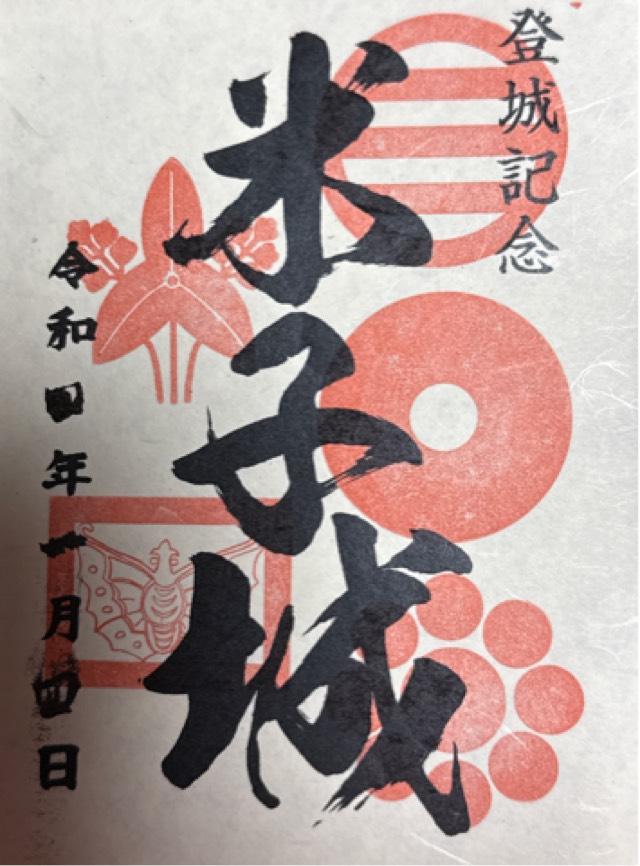 登城記念
米子城
令和四年一月四日